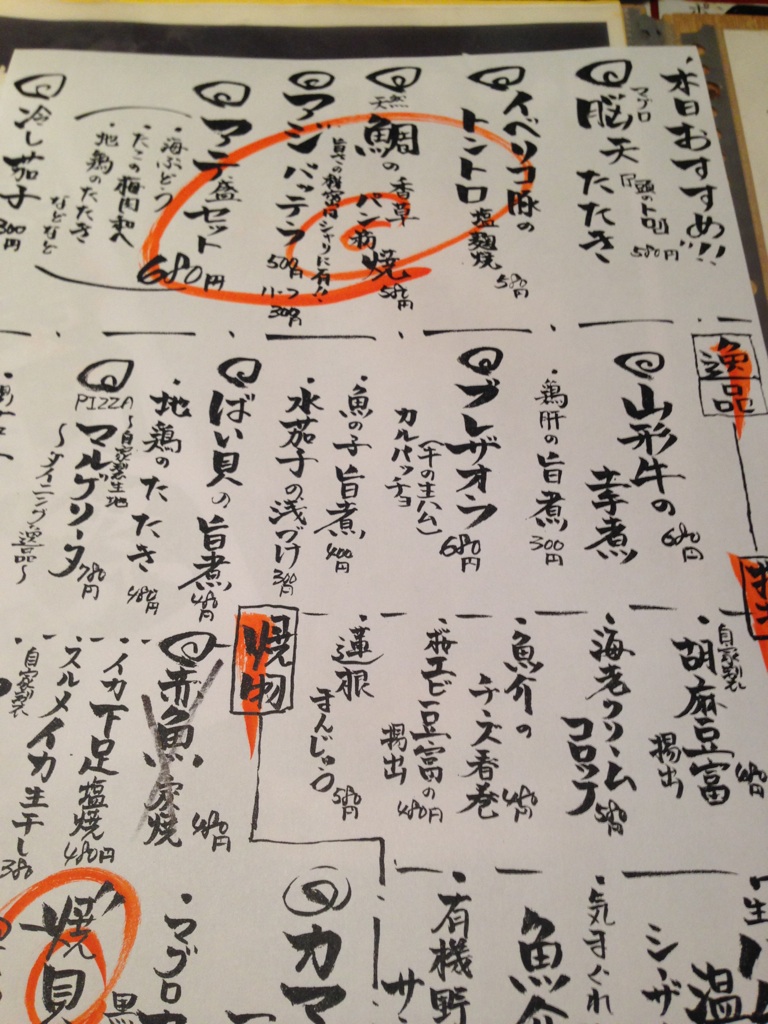 本日おすすめ!!
マグロ
脳天たたき
580円
イベリコ豚の
トントロ
塩麹焼
580円
天然
鯛の香草
パン粉焼
580円
アジバッテラ
500円
ハーフ
300円
アテ盛セット
680円
・海ぶどう
・たこの梅肉和へ
・地鶏のたたき
などなど
冷し茄子
300円
逸品
山形牛の
辛煮
680円
・鶏肝の旨煮
300円
ブレザオラ
(牛の生ハム)
カルパッチョ
680円
・魚の子旨煮
400円
・水茄子の浅づけ
300円
ばい貝の旨煮
・地鶏のたたき
480円
PIZZA
～自家製生地
マルゲリータ
780円
～ダイニング逸品～
自家製
胡麻豆富
揚出
海老クリーム
コロッケ
580円
・魚介の
チーズ春巻
・桜エビ豆富の
揚出
480円
・蓮根
まんじゅう
580円
焼物
赤魚
480円
・イカ下足塩焼
480円
・自家製
スルメイカ生干し
380
・気まぐれ
魚介
・有機野
カマ
・マグロカ
焼貝